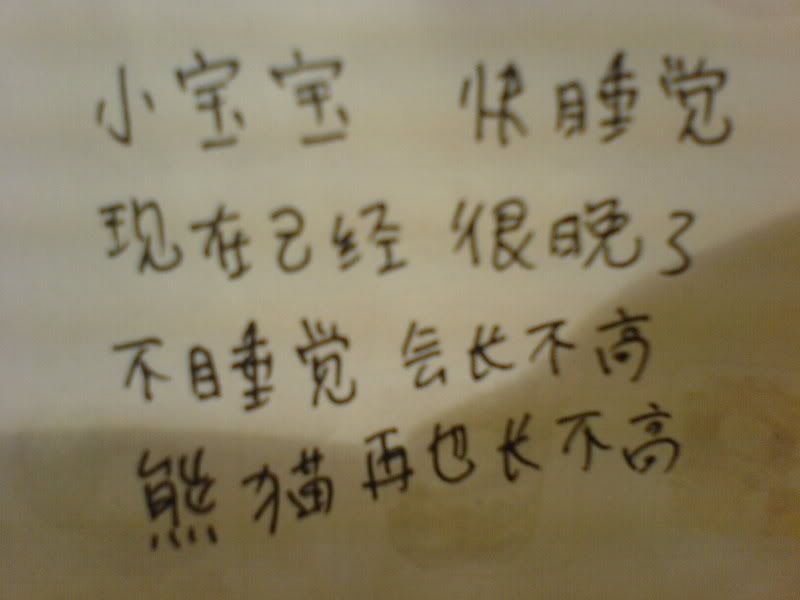 小宝宝 快睡觉
现在已经 很晚了
不睡觉 会长不高
熊猫再也长不高